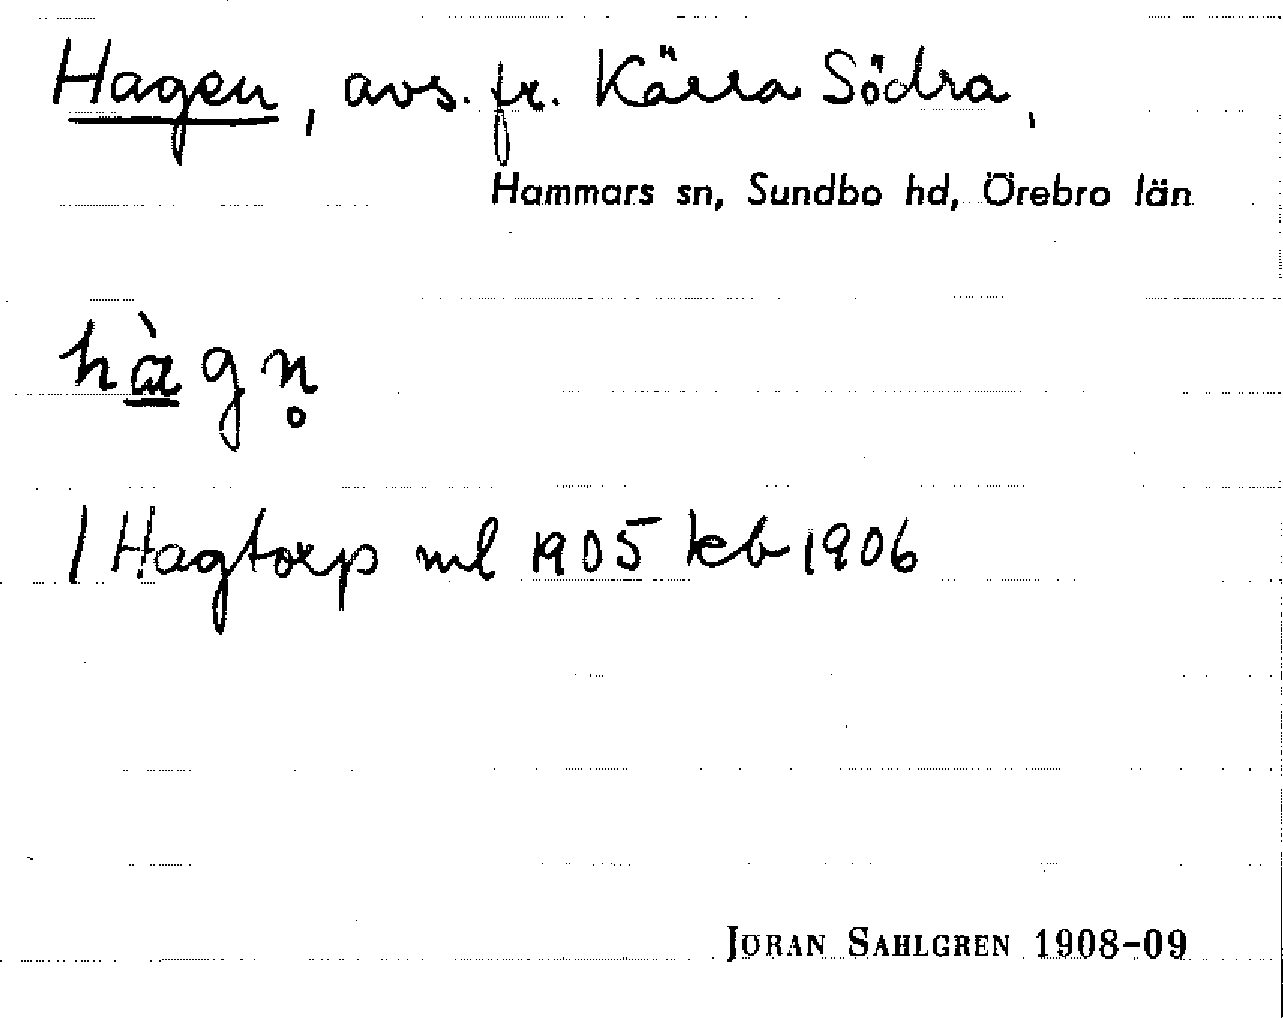 Hagen, avs. fr. Kärra Södra,
Hammars sn, Sundbo hd, Örebro län
hàgn̥
/ Hagtorp ml 1905 kb 1906
JÖRAN SAHLGREN 1908-09